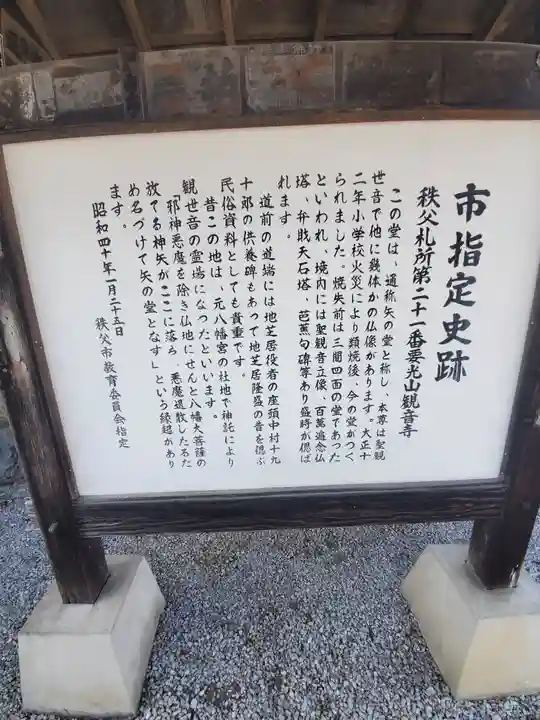 市指定史跡
秩父札所第二十一番要光山観音寺
この堂は、通称矢の堂と称し、本尊は聖観
世音で他に幾体かの仏像があります。大正十
二年小学校火災により類焼後、今の堂がつく
られました。焼失前は三間四面の堂であった
といわれ、境内には聖観音立像、百萬遍念仏
塔、弁財天石塔、芭蕉句碑等あり盛時が偲ば
れます。
道前の道端には地芝居役者の座頭中村十九
十郎の供養碑もあって地芝居隆盛の昔を偲ぶ
民俗資料としても貴重です。
昔この地は、元八幡宮の社地で神託により
観世音の霊場になったといいます。
「邪神悪魔を除き仏地にせんと八幡大菩薩の
放てる神矢がここに落ち、悪魔退散したるた
め名づけて矢の堂となす」という縁起があり
ます。
昭和四十年一月二十五日
秩父市教育委員会指定